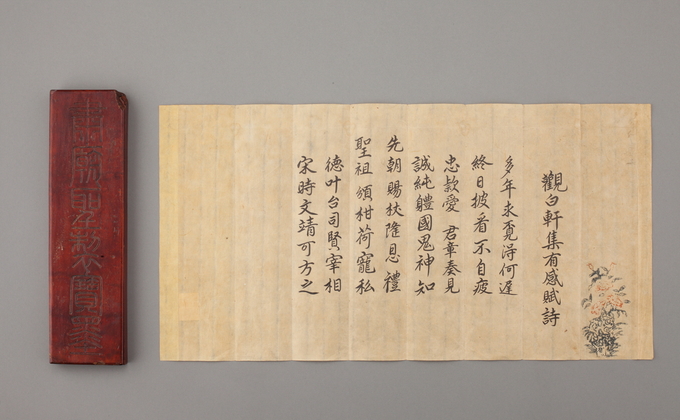 觀白軒集有感賦詩
多年求覓淂何遲
終日披看不自疲
忠款愛 君章奏見
誠純體國鬼神知
先朝賜杖隆恩禮
聖祖頒柑荷寵私
德叶台司賢宰相
宋時文靖可方之